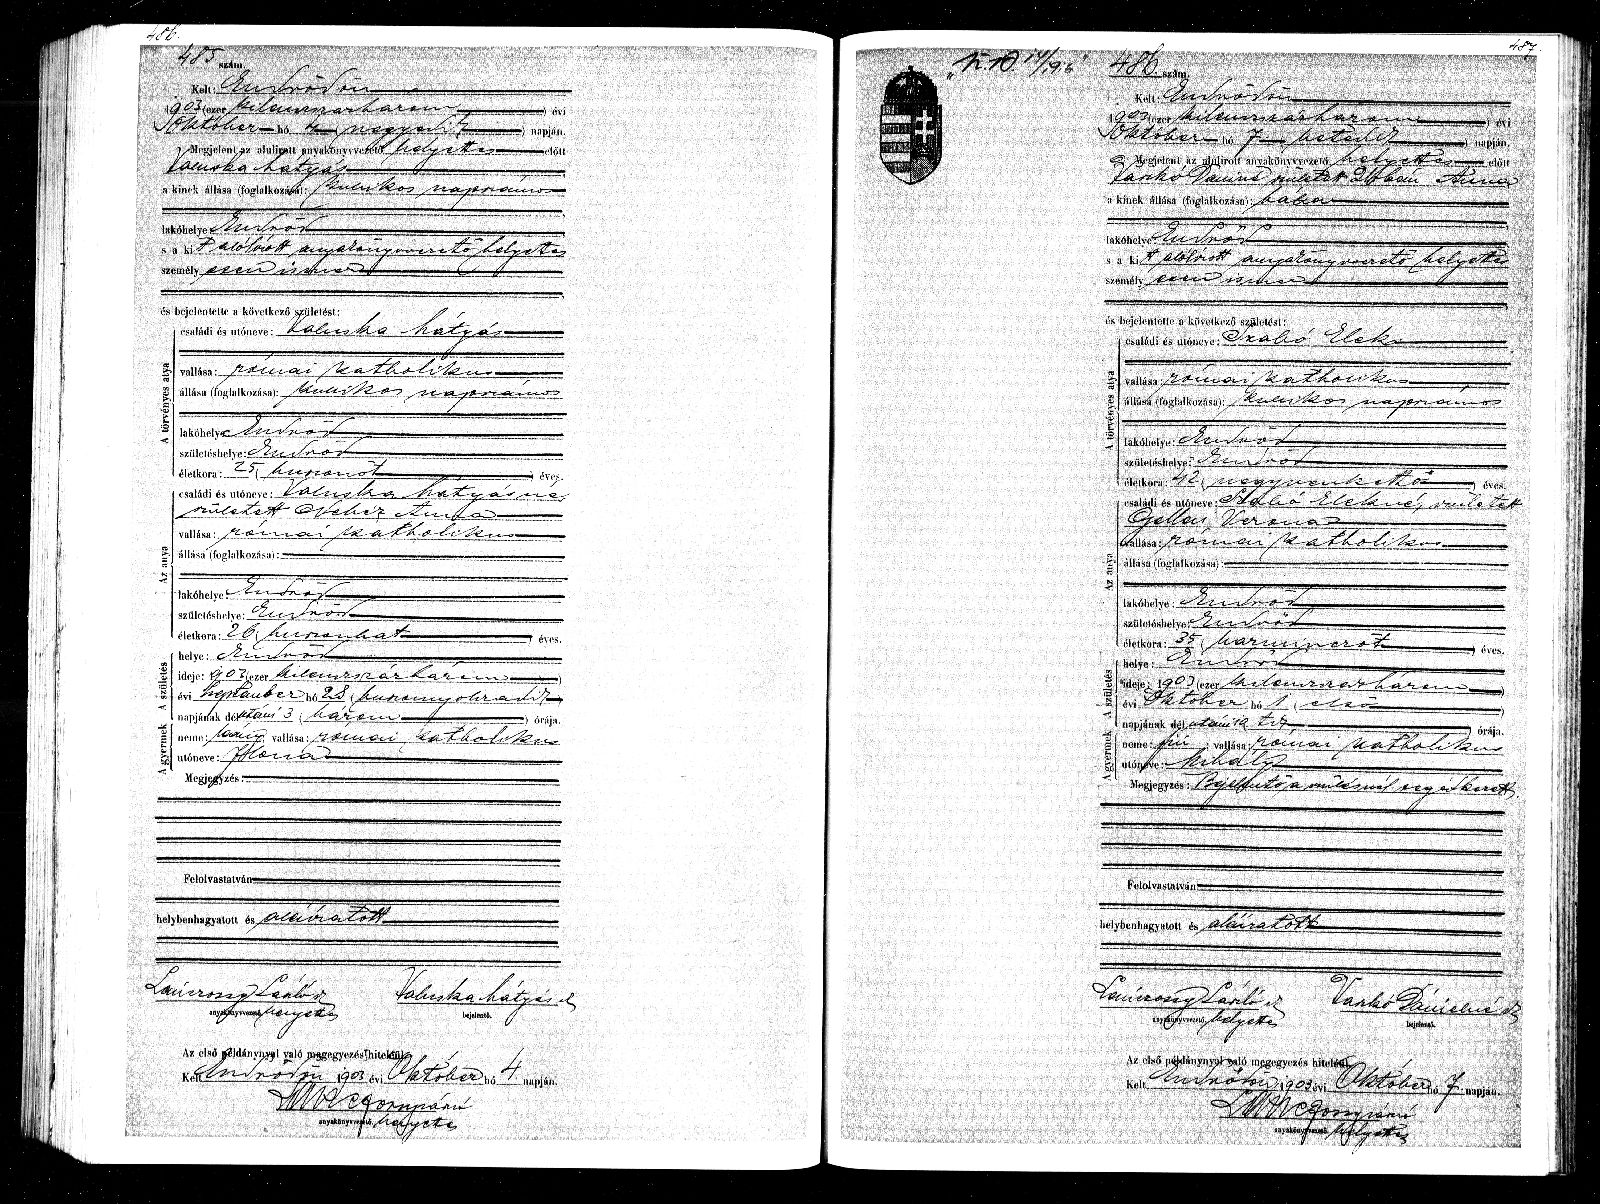 486.
485 szám.
Kelt: Endrődön
1903 (ezer kilenczszázhárom) évi
Október hó 4 (negyedik) napján.
Megjelent az alulirott anyakönyvvezető helyettes előtt
Valuska Mátyás
a kinek állása (foglalkozása): kulikos napszámos
lakóhelye Endrőd
s a ki t alólirott anyakönyvvezető helyettes
személy esen ismer
és bejelentette a következő születést:
A törvényes atya
családi és utóneve: Valuska Mátyás
vallása: római katholikus
állása (foglalkozása): kulikos napszámos
lakóhelye Endrőd
születéshelye: Endrőd
életkora: 25 (huszonöt) éves.
Az anya
családi és utóneve: Valuska Mátyásné,
született Anna
vallása: római katholikus
állása (foglalkozása):
lakóhelye: Endrőd
születéshelye: Endrőd
életkora: 26 (huszonhat) éves.
A születés
helye: Endrőd
ideje: 1903 (ezer kilenczszázhárom)
évi September hó 28 (huszonnyolczadik)
napjának délutáni 3 (három) órája.
A gyermek
neme: leány; vallása: római katholikus
utóneve: Ilona
Megjegyzés:
Felolvastatván
helybenhagyatott és aláiratott
László
helyettes
anyakönyvvezető.
Valuska Mátyás
bejelentő.
Az első példánynyal való megegyezés hiteléül
Kelt Endrődön 1903 évi Október hó 4 napján.
anyakönyvvezető. helyettes
487.
486. szám.
Kelt: Endrődön
1903 (ezer kilenczszázhárom) évi
Október hó 7 (hetedik) napján.
Megjelent az alulirott anyakönyvvezető helyettes előtt
Dánielné született Anna
a kinek állása (foglalkozása): bába
lakóhelye Endrőd
s a ki t alólirott anyakönyvvezető helyettes
személy esen ismer
és bejelentette a következő születést:
A törvényes atya
családi és utóneve: Szabó Elek
vallása: római katholikus
állása (foglalkozása): kulikos napszámos
lakóhelye: Endrőd
születéshelye: Endrőd
életkora: 42 (negyvenkettő) éves.
Az anya
családi és utóneve: Szabó Elekné, született
Gellai Verona
vallása: római katholikus
állása (foglalkozása):
lakóhelye: Endrőd
születéshelye: Endrőd
életkora: 35 (harminczöt) éves.
A születés
helye: Endrőd
ideje: 1903 (ezer kilenczszázhárom)
évi Október hó 1 (első)
napjának délutáni 10 tiz órája.
A gyermek
neme: fiú; vallása: római katholikus
utóneve: Mihály
Megjegyzés: Bejelentő a szülésnél segédkezett.
Felolvastatván
helybenhagyatott és aláiratott
László
helyettes
anyakönyvvezető.
Dánielné
bejelentő.
Az első példánynyal való megegyezés hiteléül
Kelt Endrődön 1903 évi Október hó 7 napján.
anyakönyvvezető. helyettes